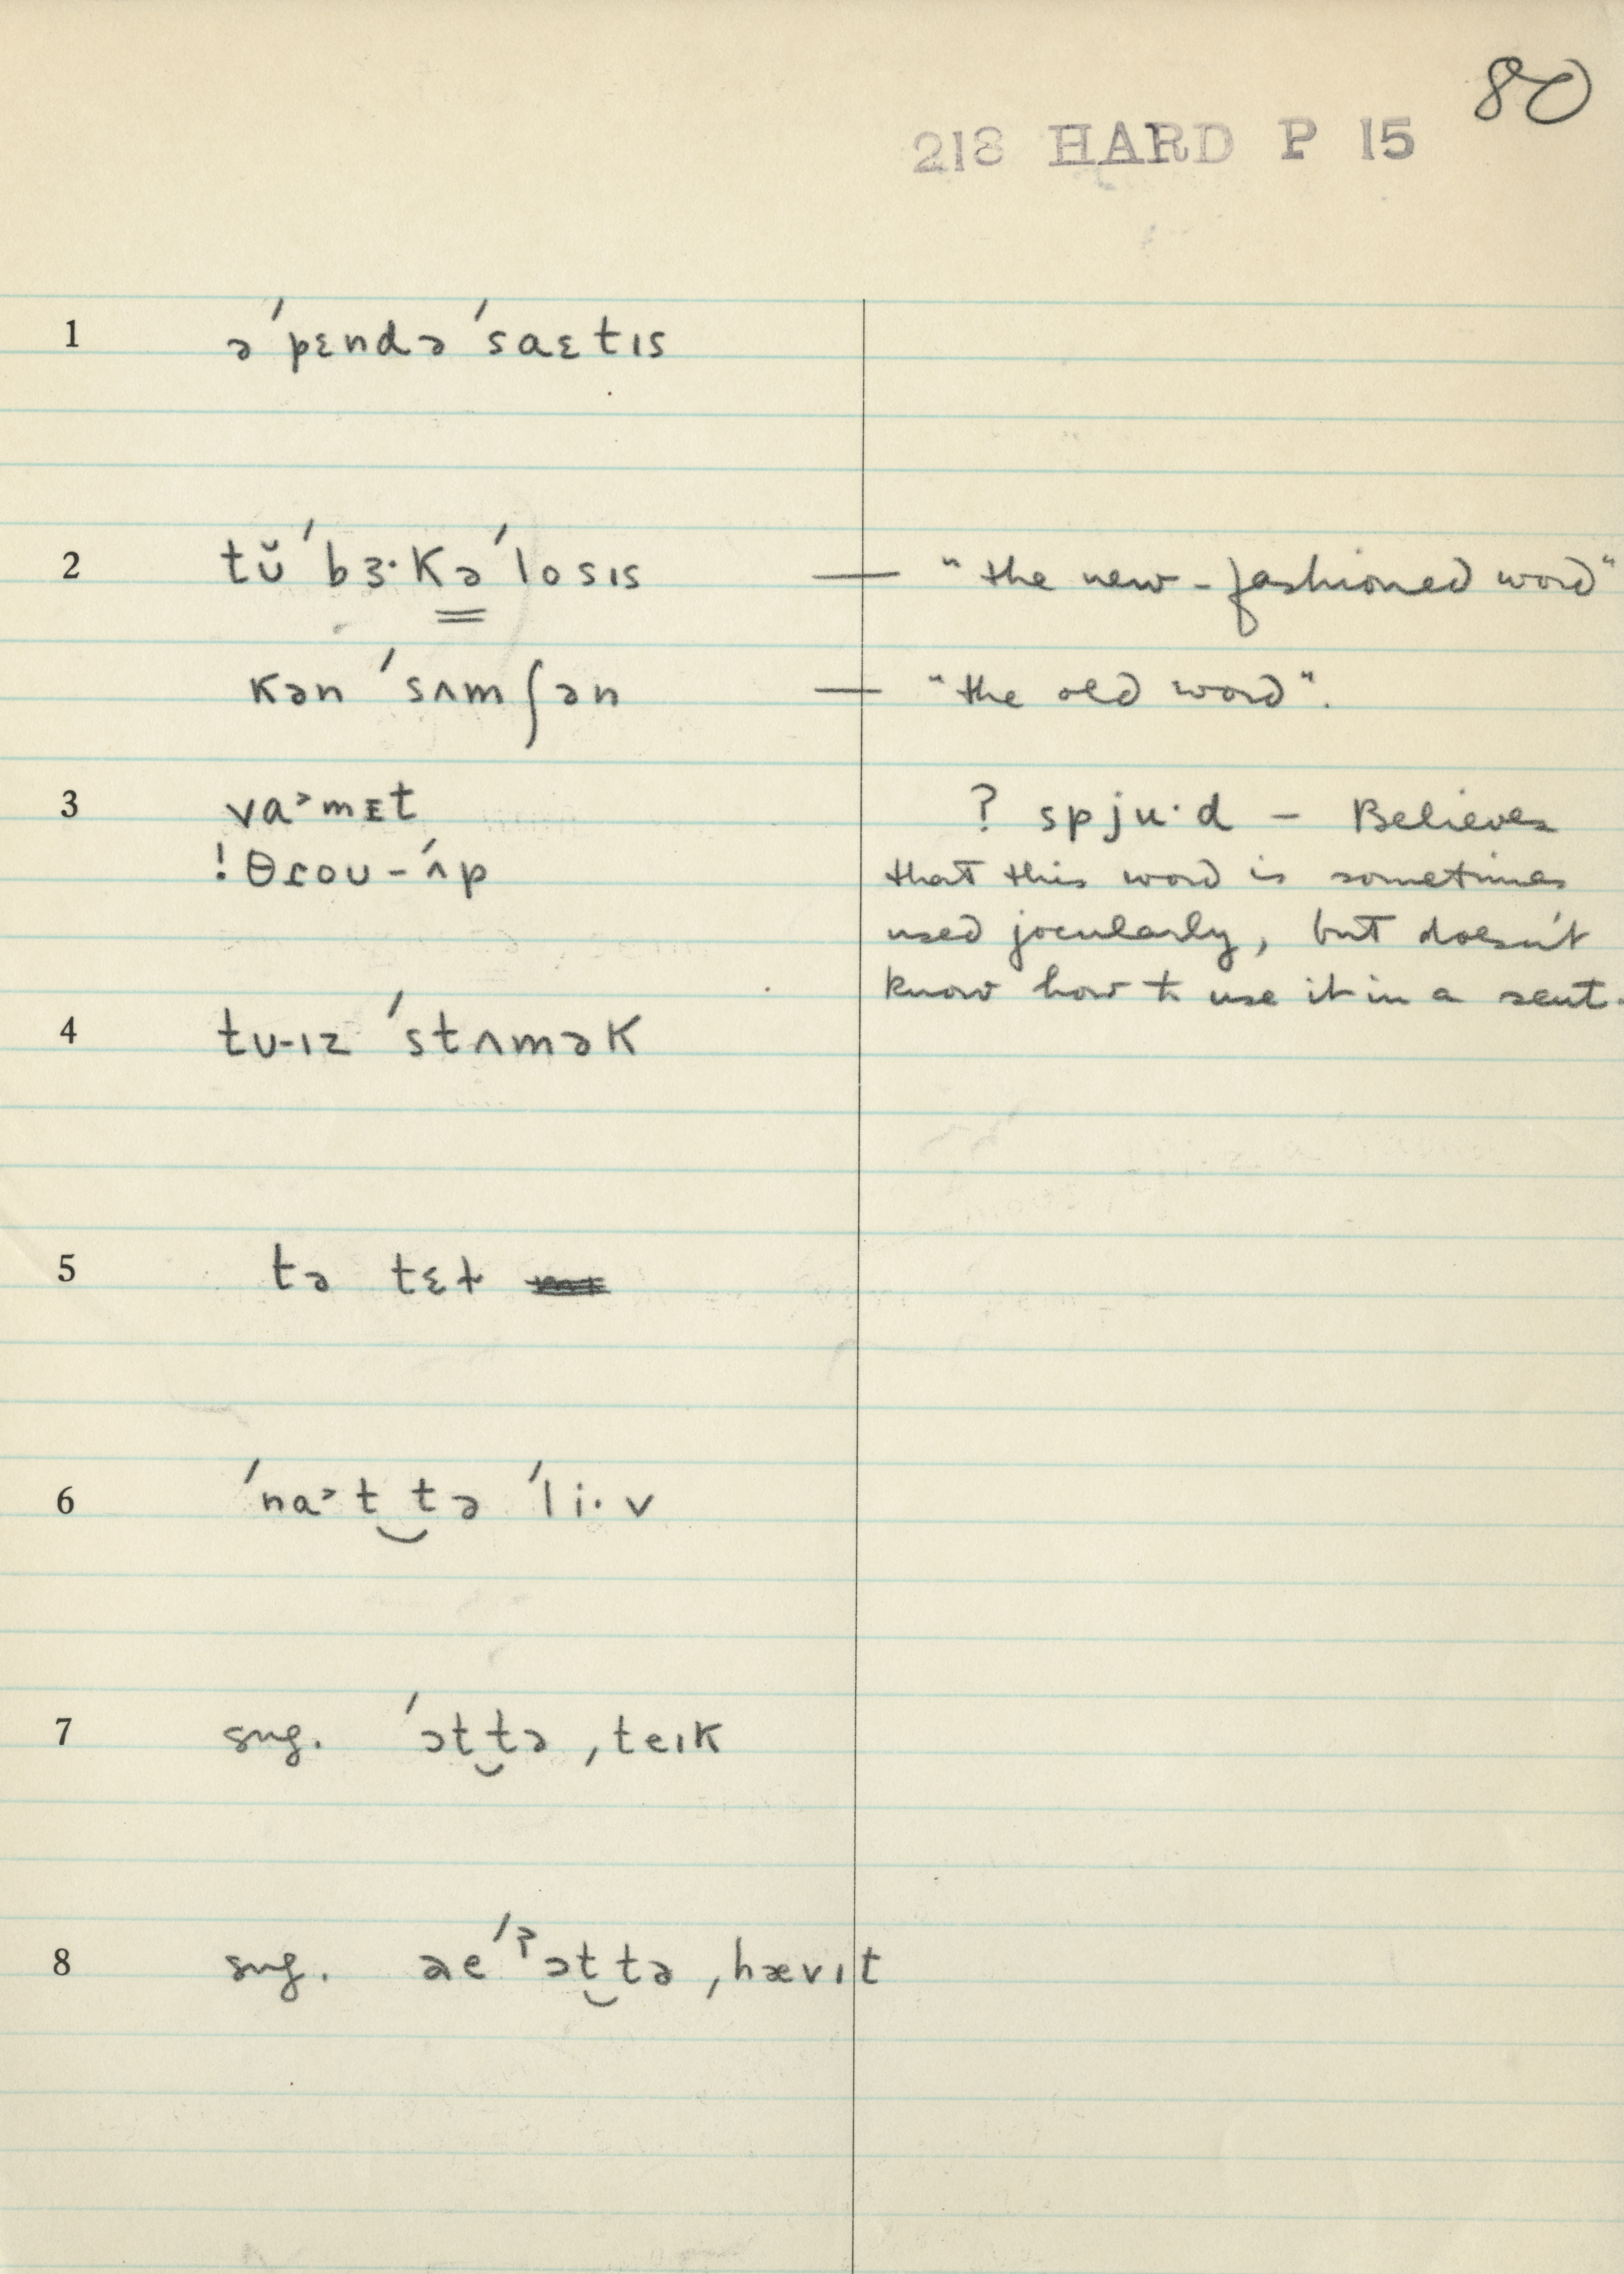 80
218 HARD P 15
1 ə ˈpɛndə ˈsaɛtɪs
2 tŭ ˈbɜ·kə ˈlosɪs — "the new-fashioned word"
kən ˈsʌmʃən — "the old word".
3 va˃mɪt ? spju·d – Believes
!θɾoʊ-ˈʌp that this word is sometimes
used jocularly, but doesn't
know how to use it in a sent.
4 tʊ-ɪz ˈstʌmək
5 tə tɛɫ
6 ˈna˃t tə ˈli·v
7 sug. ˈɔt tə ˌteɪk
8 sug. əe ˈʔɔt tə ˌhævɪt